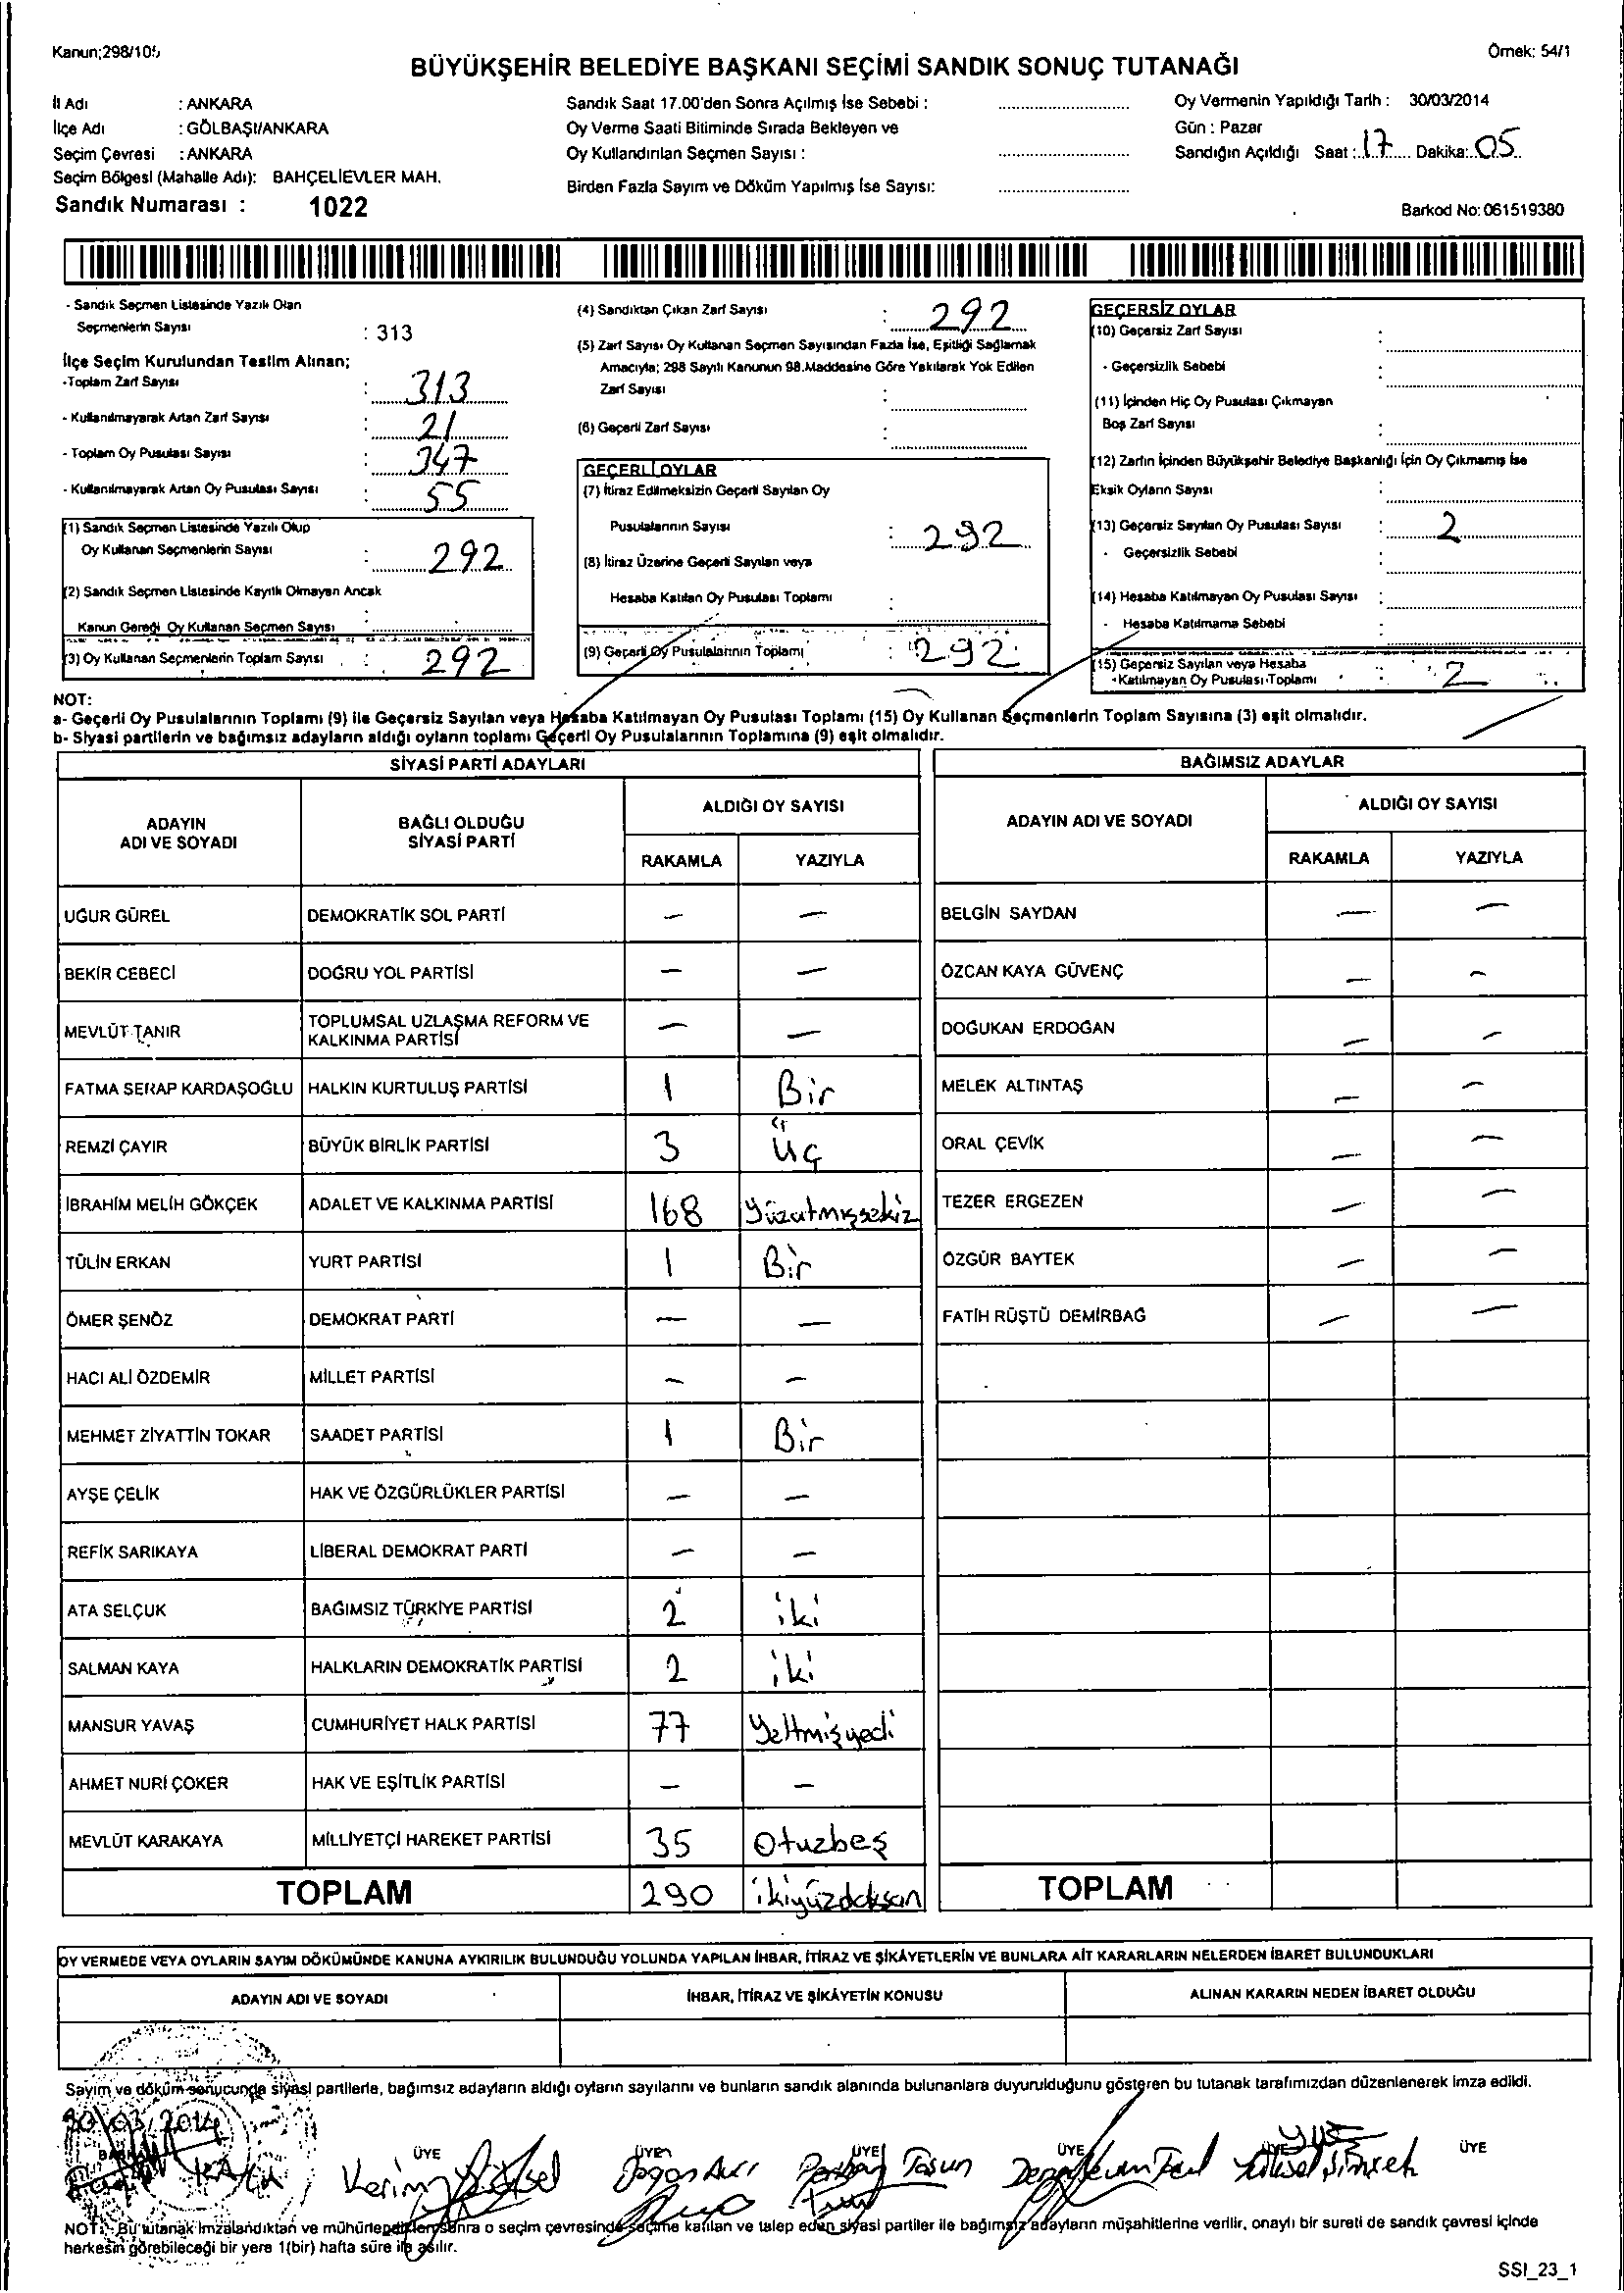 Kanun;298/105
Örnek: 54/1
BÜYÜKŞEHİR BELEDİYE BAŞKANI SEÇİMİ SANDIK SONUÇ TUTANAĞI
İl Adı : ANKARA
İlçe Adı : GÖLBAŞI/ANKARA
Seçim Çevresi : ANKARA
Seçim Bölgesi (Mahalle Adı): BAHÇELİEVLER MAH.
Sandık Numarası : 1022
Sandık Saat 17.00'den Sonra Açılmış İse Sebebi :
Oy Verme Saati Bitiminde Sırada Bekleyen ve
Oy Kullandırılan Seçmen Sayısı :
Birden Fazla Sayım ve Döküm Yapılmış İse Sayısı:
Oy Vermenin Yapıldığı Tarih : 30/03/2014
Gün : Pazar
Sandığın Açıldığı Saat : 17 Dakika: 05
Barkod No: 061519380
- Sandık Seçmen Listesinde Yazılı Olan
Seçmenlerin Sayısı : 313
İlçe Seçim Kurulundan Teslim Alınan;
-Toplam Zarf Sayısı : 313
- Kullanılmayarak Artan Zarf Sayısı : 21
- Toplam Oy Pusulası Sayısı : 347
- Kullanılmayarak Artan Oy Pusulası Sayısı : 55
(1) Sandık Seçmen Listesinde Yazılı Olup
Oy Kullanan Seçmenlerin Sayısı : 292
(2) Sandık Seçmen Listesinde Kayıtlı Olmayan Ancak
Kanun Gereği Oy Kullanan Seçmen Sayısı :
(3) Oy Kullanan Seçmenlerin Toplam Sayısı : 292
(4) Sandıktan Çıkan Zarf Sayısı : 292
(5) Zarf Sayısı Oy Kullanan Seçmen Sayısından Fazla İse, Eşitliği Sağlamak
Amacıyla; 298 Sayılı Kanunun 98.Maddesine Göre Yakılarak Yok Edilen
Zarf Sayısı :
(6) Geçerli Zarf Sayısı :
GEÇERLİ OYLAR
(7) İtiraz Edilmeksizin Geçerli Sayılan Oy
Pusulalarının Sayısı : 292
(8) İtiraz Üzerine Geçerli Sayılan veya
Hesaba Katılan Oy Pusulası Toplamı :
(9) Geçerli Oy Pusulalarının Toplamı : 292
GEÇERSİZ OYLAR
(10) Geçersiz Zarf Sayısı :
- Geçersizlik Sebebi :
(11) İçinden Hiç Oy Pusulası Çıkmayan
Boş Zarf Sayısı :
(12) Zarfın İçinden Büyükşehir Belediye Başkanlığı İçin Oy Çıkmamış İse
Eksik Oyların Sayısı :
(13) Geçersiz Sayılan Oy Pusulası Sayısı : 2
- Geçersizlik Sebebi :
(14) Hesaba Katılmayan Oy Pusulası Sayısı :
- Hesaba Katılmama Sebebi :
(15) Geçersiz Sayılan veya Hesaba
Katılmayan Oy Pusulası Toplamı : 2
NOT:
a- Geçerli Oy Pusulalarının Toplamı (9) ile Geçersiz Sayılan veya Hesaba Katılmayan Oy Pusulası Toplamı (15) Oy Kullanan Seçmenlerin Toplam Sayısına (3) eşit olmalıdır.
b- Siyasi partilerin ve bağımsız adayların aldığı oyların toplamı Geçerli Oy Pusulalarının Toplamına (9) eşit olmalıdır.
SİYASİ PARTİ ADAYLARI
ADAYIN ADI VE SOYADI
BAĞLI OLDUĞU SİYASİ PARTİ
ALDIĞI OY SAYISI
RAKAMLA YAZIYLA
UĞUR GÜREL DEMOKRATİK SOL PARTİ — —
BEKİR CEBECİ DOĞRU YOL PARTİSİ — —
MEVLÜT TANIR TOPLUMSAL UZLAŞMA REFORM VE KALKINMA PARTİSİ — —
FATMA SERAP KARDAŞOĞLU HALKIN KURTULUŞ PARTİSİ 1 Bir
REMZİ ÇAYIR BÜYÜK BİRLİK PARTİSİ 3 Üç
İBRAHİM MELİH GÖKÇEK ADALET VE KALKINMA PARTİSİ 168 Yüzatmışsekiz
TÜLİN ERKAN YURT PARTİSİ 1 Bir
ÖMER ŞENÖZ DEMOKRAT PARTİ — —
HACI ALİ ÖZDEMİR MİLLET PARTİSİ — —
MEHMET ZİYATTİN TOKAR SAADET PARTİSİ 1 Bir
AYŞE ÇELİK HAK VE ÖZGÜRLÜKLER PARTİSİ — —
REFİK SARIKAYA LİBERAL DEMOKRAT PARTİ — —
ATA SELÇUK BAĞIMSIZ TÜRKİYE PARTİSİ 2 iki
SALMAN KAYA HALKLARIN DEMOKRATİK PARTİSİ 2 iki
MANSUR YAVAŞ CUMHURİYET HALK PARTİSİ 77 Yetmişyedi
AHMET NURİ ÇOKER HAK VE EŞİTLİK PARTİSİ — —
MEVLÜT KARAKAYA MİLLİYETÇİ HAREKET PARTİSİ 35 Otuzbeş
TOPLAM 290 ikiyüzdoksan
BAĞIMSIZ ADAYLAR
ADAYIN ADI VE SOYADI
ALDIĞI OY SAYISI
RAKAMLA YAZIYLA
BELGİN SAYDAN — —
ÖZCAN KAYA GÜVENÇ — —
DOĞUKAN ERDOĞAN — —
MELEK ALTINTAŞ — —
ORAL ÇEVİK — —
TEZER ERGEZEN — —
ÖZGÜR BAYTEK — —
FATİH RÜŞTÜ DEMİRBAĞ — —
TOPLAM
OY VERMEDE VEYA OYLARIN SAYIM DÖKÜMÜNDE KANUNA AYKIRILIK BULUNDUĞU YOLUNDA YAPILAN İHBAR, İTİRAZ VE ŞİKÂYETLERİN VE BUNLARA AİT KARARLARIN NELERDEN İBARET BULUNDUKLARI
ADAYIN ADI VE SOYADI
İHBAR, İTİRAZ VE ŞİKÂYETİN KONUSU
ALINAN KARARIN NEDEN İBARET OLDUĞU
Sayım ve döküm sonucunda siyasi partilerle, bağımsız adayların aldığı oyların sayılarını ve bunların sandık alanında bulunanlara duyurulduğunu gösteren bu tutanak tarafımızdan düzenlenerek imza edildi.
30/03/2014
ÜYE ÜYE ÜYE ÜYE ÜYE ÜYE
Kerim
NOT: Bu tutanak imzalandıktan ve mühürlendikten sonra o seçim çevresinde seçime katılan ve talep eden siyasi partiler ile bağımsız adayların müşahitlerine verilir, onaylı bir sureti de sandık çevresi içinde
herkesin görebileceği bir yere 1(bir) hafta süre ile asılır.
SSI_23_1